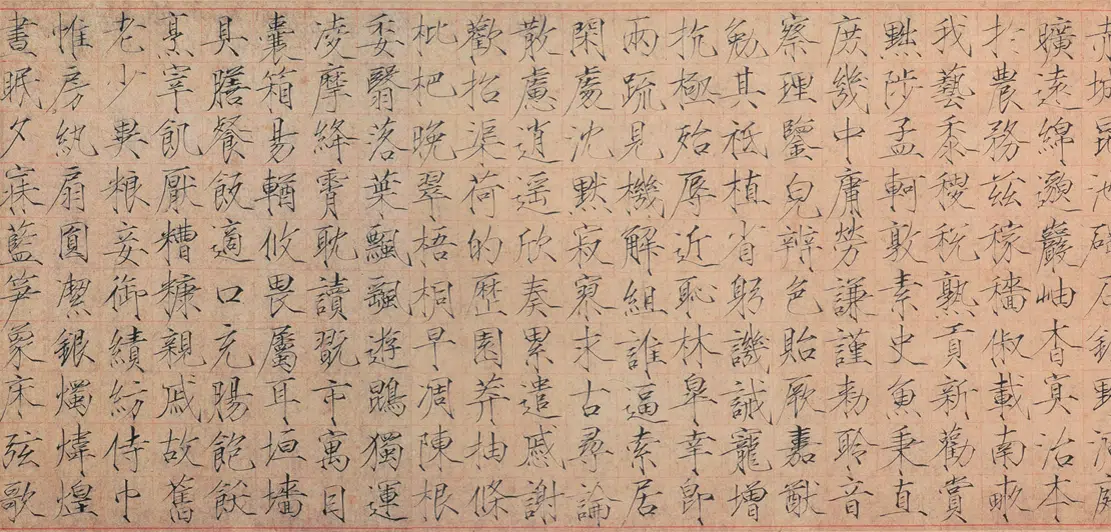 赤城昆池碣石鉅野洞庭
曠遠綿邈巖岫杳冥治本
於農務茲稼穡俶載南畝
我藝黍稷稅熟貢新勸賞
黜陟孟軻敦素史魚秉直
庶幾中庸勞謙謹勑聆音
察理鑒皃辨色貽厥嘉猷
勉其祗植省躬譏誡寵增
抗極殆辱近恥林皋幸即
兩疏見機解組誰逼索居
閑處沈默寂寥求古尋論
散慮逍遙欣奏累遣戚謝
歡招渠荷的歷園莽抽條
枇杷晚翠梧桐早凋陳根
委翳落葉飄颻遊鵾獨運
凌摩絳霄耽讀翫市寓目
囊箱易輶攸畏屬耳垣墻
具膳餐飯適口充腸飽飫
烹宰飢厭糟糠親戚故舊
老少異粮妾御績紡侍巾
惟房紈扇圓潔銀燭煒煌
晝眠夕寐藍笋象床弦歌